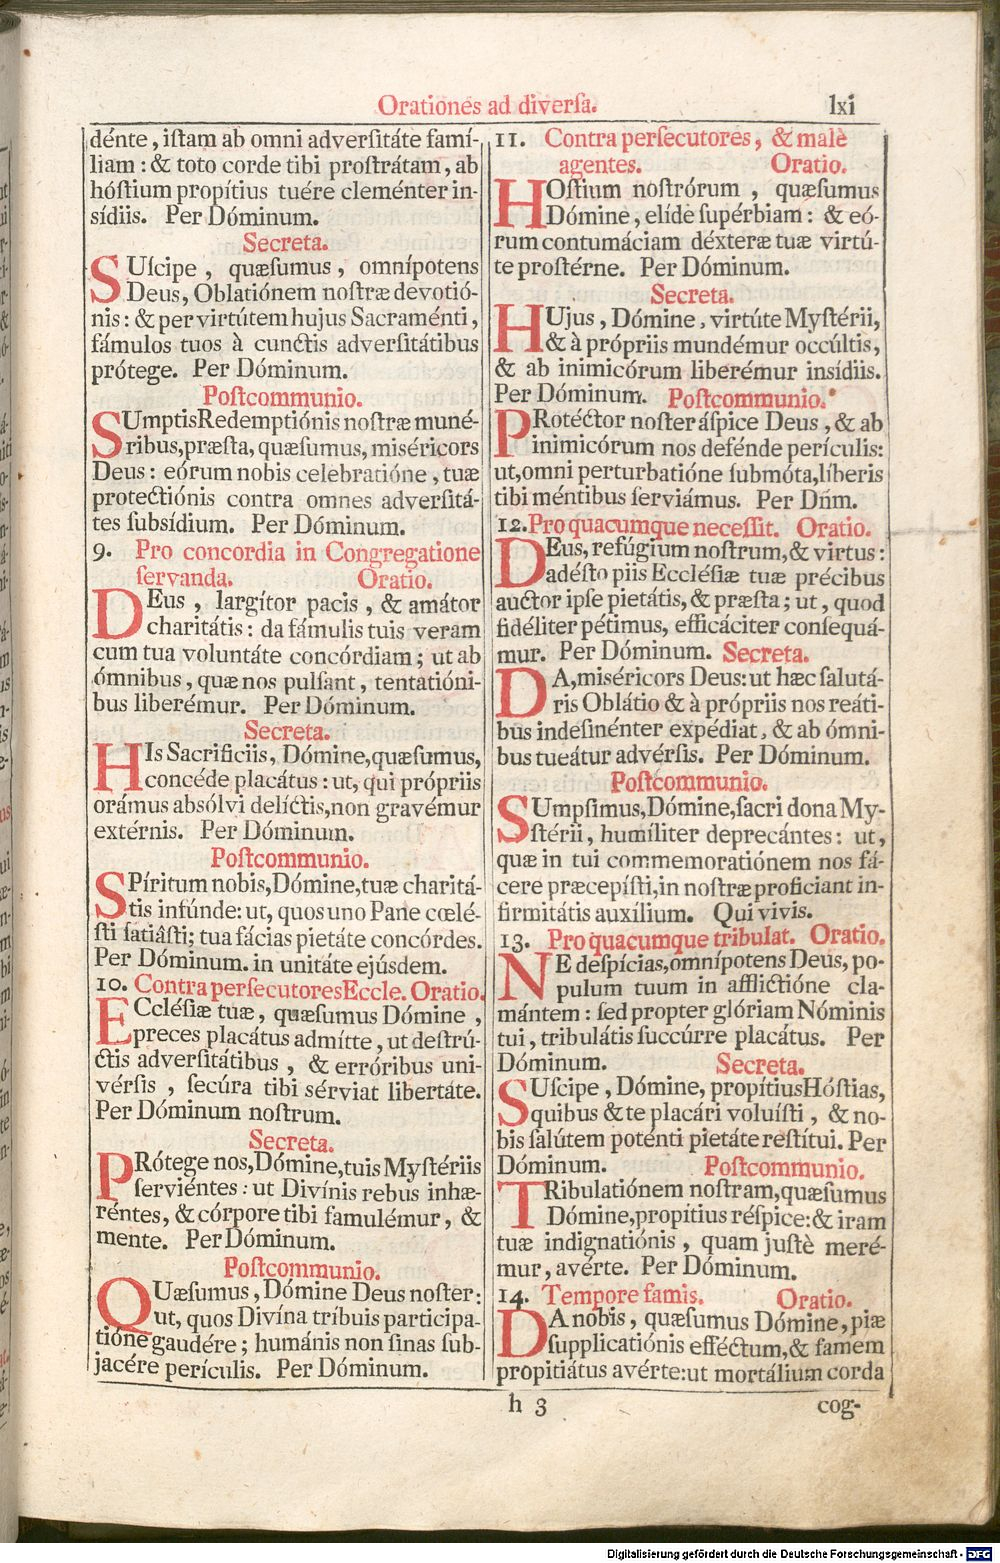 Orationes ad diversa. lxi
dénte, istam ab omni adversitáte famí-
liam: & toto corde tibi prostrátam, ab
hóstium propítius tuére cleménter in-
sídiis. Per Dóminum.
Secreta.
SUscipe, quæsumus, omnípotens
Deus, Oblatiónem nostræ devotió-
nis: & per virtútem hujus Sacraménti,
fámulos tuos à cunctis adversitátibus
prótege. Per Dóminum.
Postcommunio.
SUmptis Redemptiónis nostræ muné-
ribus, præsta, quæsumus, miséricors
Deus: eórum nobis celebratióne, tuæ
protectiónis contra omnes adversitá-
tes subsídium. Per Dóminum.
9. Pro concordia in Congregatione
servanda. Oratio.
DEus, largítor pacis, & amátor
charitátis: da fámulis tuis veram
cum tua voluntáte concórdiam; ut ab
ómnibus, quæ nos pulsant, tentatióni-
bus liberémur. Per Dóminum.
Secreta.
HIs Sacrificiis, Dómine, quæsumus,
concéde placátus: ut, qui própriis
orámus absólvi delíctis, non gravémur
extérnis. Per Dóminum.
Postcommunio.
SPíritum nobis, Dómine, tuæ charitá-
tis infúnde: ut, quos uno Pane cœlé-
sti satiâsti; tua fácias pietáte concórdes.
Per Dóminum. in unitáte ejúsdem.
10. Contra persecutores Eccle. Oratio.
ECclésiæ tuæ, quæsumus Dómine,
preces placátus admítte, ut destrú-
ctis adversitátibus, & erróribus uni-
vérsis, secúra tibi sérviat libertáte.
Per Dóminum nostrum.
Secreta.
PRótege nos, Dómine, tuis Mystériis
serviéntes: ut Divínis rebus inhæ-
réntes, & córpore tibi famulémur, &
mente. Per Dóminum.
Postcommunio.
QUæsumus, Dómine Deus noster:
ut, quos Divína tríbuis participa-
tióne gaudére; humánis non sinas sub-
jacére perículis. Per Dóminum.
11. Contra persecutores, & malè
agentes. Oratio.
HOstium nostrórum, quæsumus
Dómine, elíde supérbiam: & eó-
rum contumáciam déxteræ tuæ virtú-
te prostérne. Per Dóminum.
Secreta.
HUjus, Dómine, virtúte Mystérii,
& à própriis mundémur occúltis,
& ab inimicórum liberémur insídiis.
Per Dóminum. Postcommunio.
PRotéctor noster áspice Deus, & ab
inimicórum nos defénde perículis:
ut, omni perturbatióne submóta, líberis
tibi méntibus serviámus. Per Dnm.
12. Pro quacumque necessit. Oratio.
DEus, refúgium nostrum, & virtus:
adésto piis Ecclésiæ tuæ précibus
auctor ipse pietátis, & præsta; ut, quod
fidéliter pétimus, efficáciter consequá-
mur. Per Dóminum. Secreta.
DA, miséricors Deus: ut hæc salutá-
ris Oblátio & à própriis nos reáti-
bus indesinénter expédiat, & ab ómni-
bus tueátur advérsis. Per Dóminum.
Postcommunio.
SUmpsimus, Dómine, sacri dona My-
stérii, humíliter deprecántes: ut,
quæ in tui commemoratiónem nos fá-
cere præcepísti, in nostræ proficiant in-
firmitátis auxílium. Qui vivis.
13. Pro quacumque tribulat. Oratio.
NE despícias, omnípotens Deus, po-
pulum tuum in afflictióne cla-
mántem: sed propter glóriam Nóminis
tui, tribulátis succúrre placátus. Per
Dóminum. Secreta.
SUscipe, Dómine, propítius Hóstias,
quibus & te placári voluísti, & no-
bis salútem poténti pietáte restítui. Per
Dóminum. Postcommunio.
TRibulatiónem nostram, quæsumus
Dómine, propítius réspice: & iram
tuæ indignatiónis, quam justè meré-
mur, avérte. Per Dóminum.
14. Tempore famis. Oratio.
DA nobis, quæsumus Dómine, piæ
supplicatiónis efféctum, & famem
propitiátus avérte: ut mortálium corda
h 3 cog-
Digitalisierung gefördert durch die Deutsche Forschungsgemeinschaft - DFG